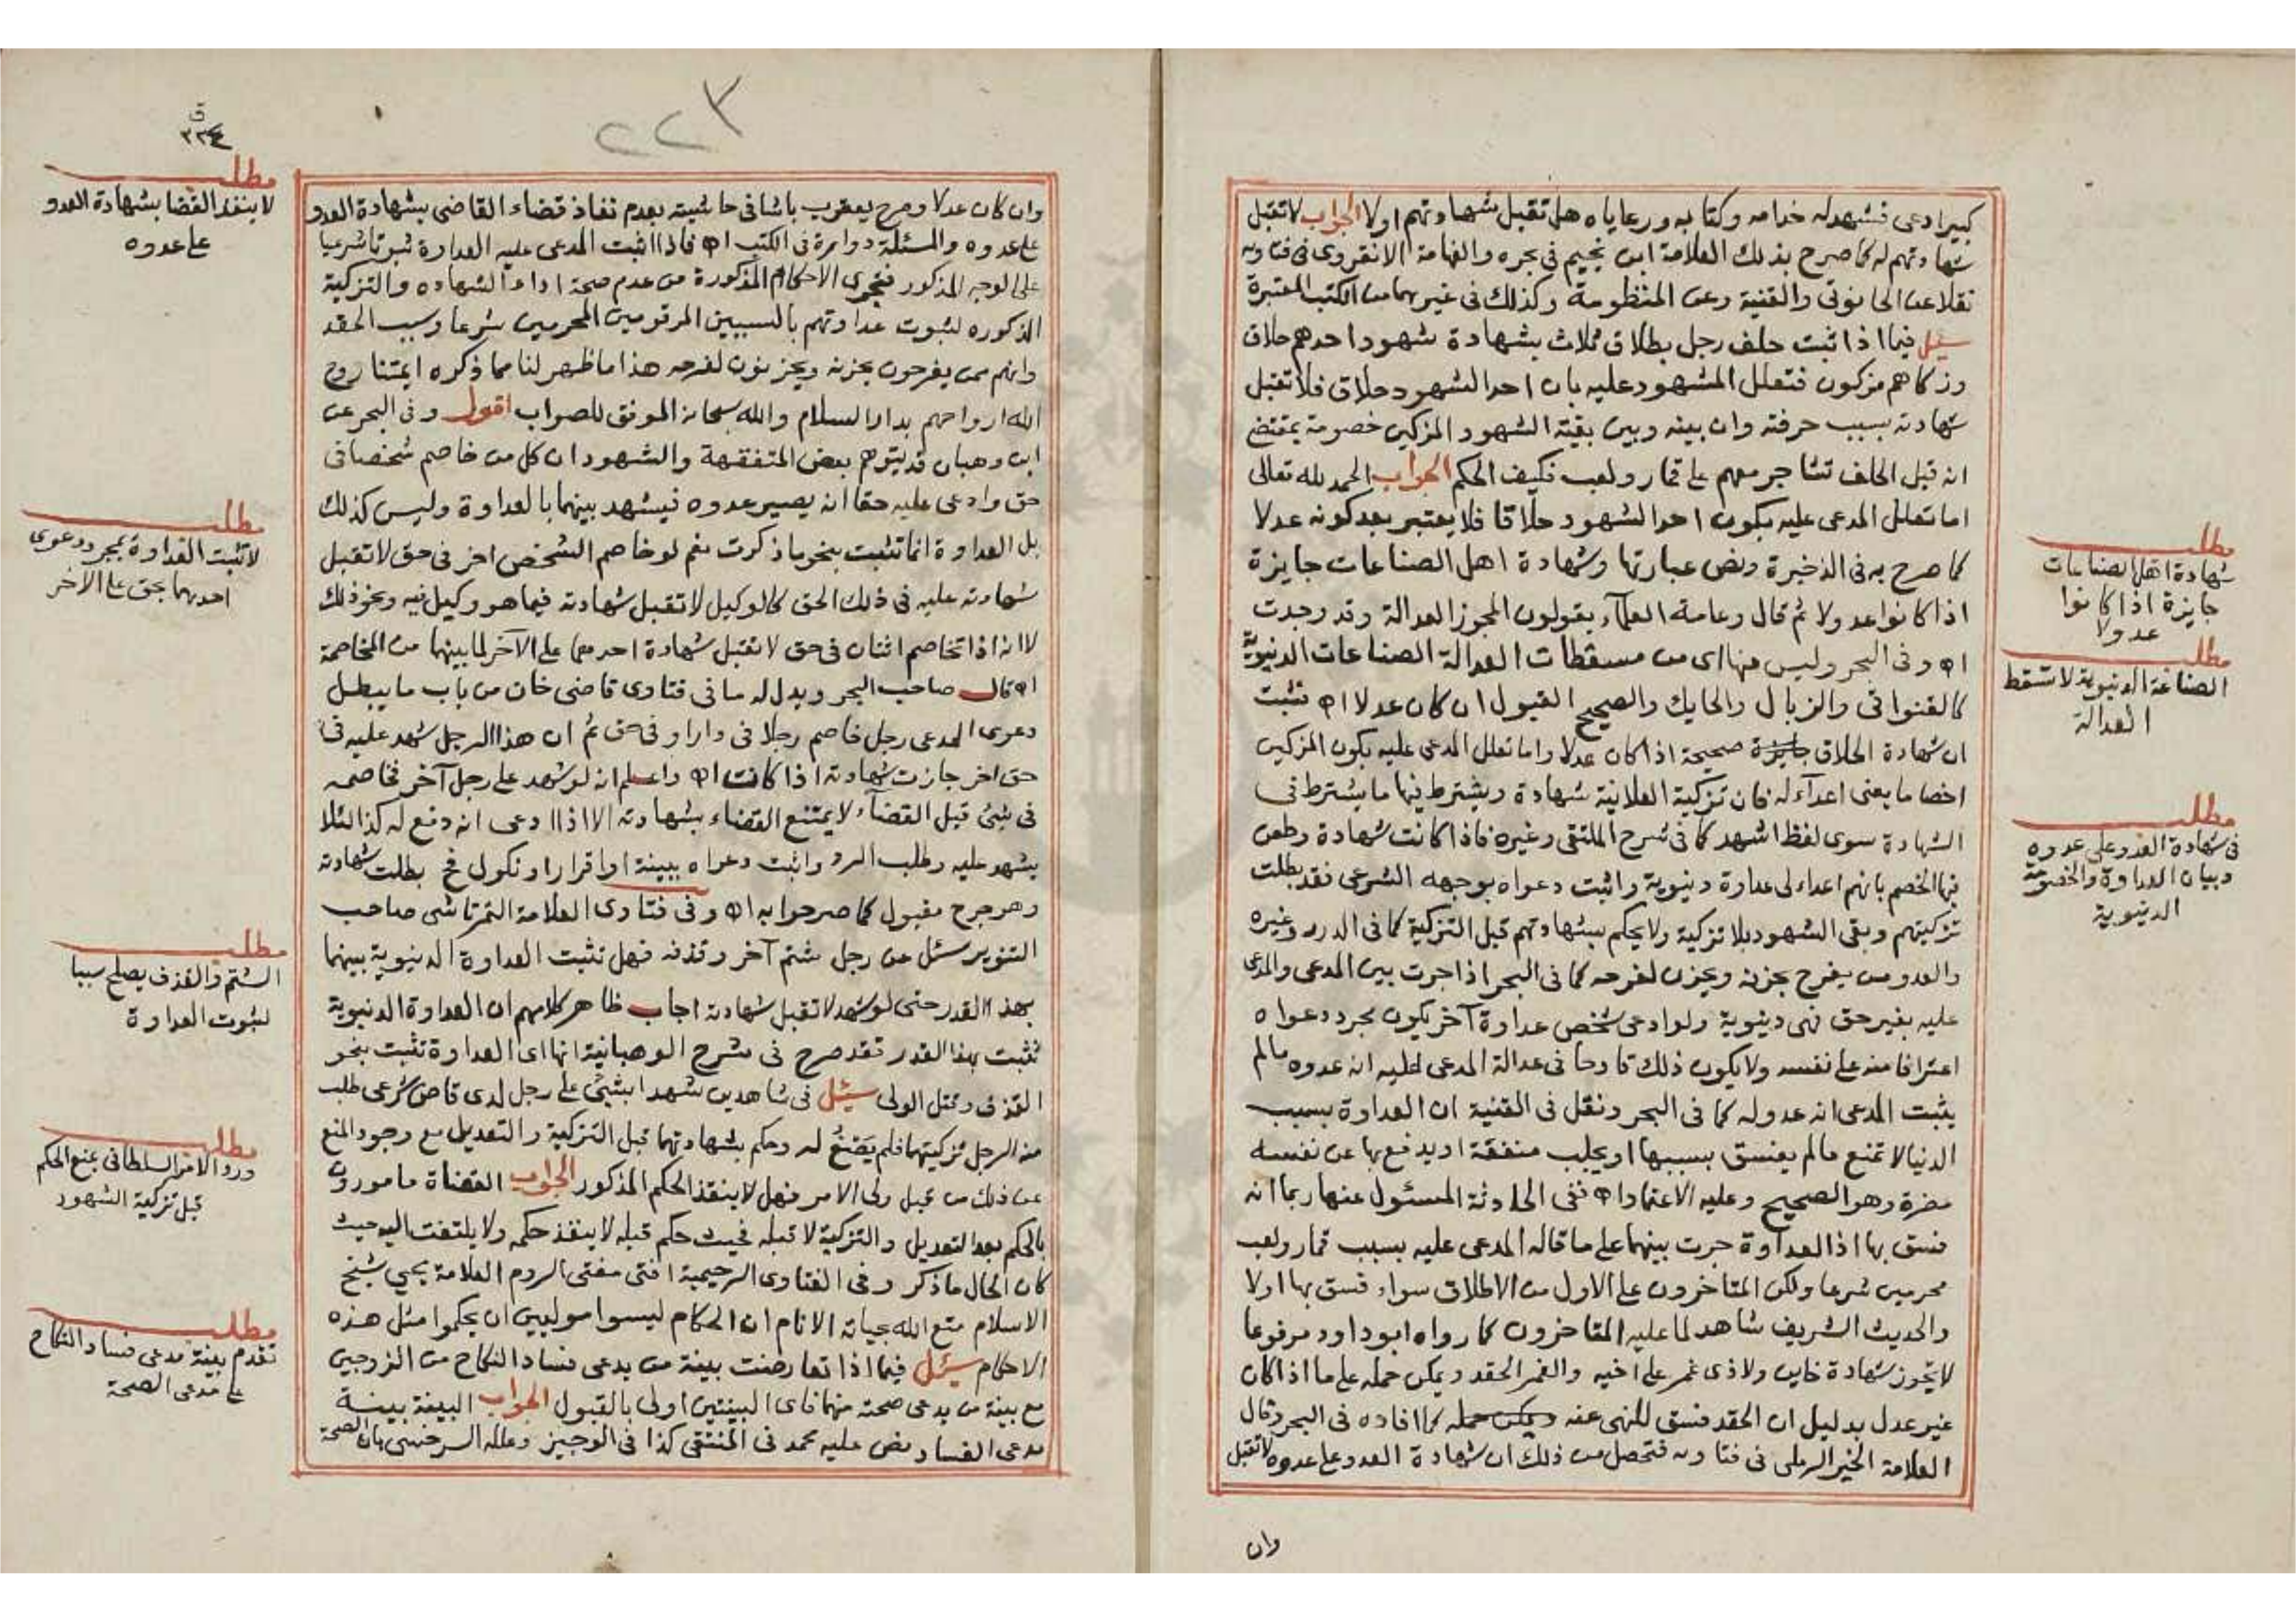 كبيرا دعى فشهد له خدامه وكتابه ورعاياه هل تقبل شهادتهم اولا الجواب لا تقبل
شهادتهم له كما صرح بذلك العلامة ابن نجيم فى بحره والفهامة الانقروى فى فتاويه
نقلا عن الحانوتى والقنية وعن المنظومة وكذلك فى غيرهما من الكتب المعتبرة
سئل فيما اذا ثبت حلف رجل بطلاق ثلاث بشهادة شهود احدهم حلاق
وزكاهم مزكون فتعلل المشهود عليه بان احد الشهود حلاق فلا تقبل
شهادته بسبب حرفته وان بينه وبين بقية الشهود المزكين خصومة بمقتضى
انه قبل الحلف تشاجر معهم على قمار ولعب فكيف الحكم الجواب الحمد لله تعالى
اما تعلل المدعى عليه بكون احد الشهود حلاقا فلا يعتبر بعد كونه عدلا
كما صرح به فى الذخيرة ونص عبارتها وشهادة اهل الصناعات جايزة
اذا كانوا عدولا ثم قال وعامة العلمآء يقولون المجوز العدالة وقد وجدت
اه وفى البحر وليس منها اى من مسقطات العدالة الصناعات الدنيوية
كالقنواتى والزبال والحايك والصحيح القبول ان كان عدلا اه فثبت
ان شهادة الحلاق جايزة صحيحة اذا كان عدلا واما تعلل المدعى عليه بكون المزكين
اخصاما يعنى اعدآء له فان تزكية العلانية شهادة ويشترط فيها ما يشترط فى
الشهادة سوى لفظ اشهد كما فى شرح الملتقى وغيره فاذا كانت شهادة وطعن
فيها الخصم بانهم اعداء لى عداوة دنيوية واثبت دعواه بوجهه الشرعى فقد بطلت
تزكيتهم وبقى الشهود بلا تزكية ولا يحكم بشهادتهم قبل التزكية كما فى الدرر وغيره
والعدو من يفرح بحزنه ويحزن لفرحه كما فى البحر اذا جرت بين المدعى والمدعى
عليه بغير حق فهى دنيوية ولو ادعى شخص عداوة آخر يكون مجرد دعواه
اعترافا منه على نفسه ولا يكون ذلك قادحا فى عدالة المدعى عليه انه عدوه مالم
يثبت المدعى انه عدو له كما فى البحر ونقل فى القنية ان العداوة بسبب
الدنيا لا تمنع مالم يفسق بسببها او يجلب منفعة او يدفع بها عن نفسه
مضرة وهو الصحيح وعليه الاعتماد اه ففى الحادثة المسئول عنها ربما انه
فسق بها اذ العداوة جرت بينهما على ما قاله المدعى عليه بسبب قمار ولعب
محرمين شرعا ولكن المتاخرون على الاول من الاطلاق سواء فسق بها اولا
والحديث الشريف شاهد لما عليه المتاخرون كما رواه ابو داود مرفوعا
لا يجوز شهادة خاين ولا ذى غمر على اخيه والغمر الحقد ويمكن حمله على ما اذا كان
غير عدل بدليل ان الحقد فسق للنهى عنه ويمكن حمله كما افاده فى البحر وقال
العلامة الخير الرملى فى فتاويه فتحصل من ذلك ان شهادة العدو على عدوه لا تقبل
وان
مطلب
شهادة اهل الصناعات
جايزة اذا كانوا
عدولا
مطلب
الصناعة الدنيوية لا تسقط
العدالة
مطلب
فى شهادة العدو على عدوه
وبيان العداوة والخصومة
الدنيوية
٢٢٣
ق
٢٢٤
وان كان عدلا وصرح يعقوب باشا فى حاشيته بعدم نفاذ قضاء القاضى بشهادة العدو
على عدوه والمسئلة دوارة فى الكتب اه فاذا اثبت المدعى عليه العداوة ثبوتا شرعيا
على الوجه المذكور فتجرى الاحكام المذكورة من عدم صحة اداء الشهاده والتزكية
المذكوره لثبوت عداوتهم بالسببين المرقومين المحرمين شرعا وسبب الحقد
وانهم ممن يفرحون بحزنه ويحزنون لفرحه هذا ما ظهر لنا مما ذكره ايمتنا روح
الله ارواحهم بدار السلام والله سبحانه الموفق للصواب اقول وفى البحر عن
ابن وهبان قد يتوهم بعض المتفقهة والشهود ان كل من خاصم شخصا فى
حق وادعى عليه حقا انه يصير عدوه فيشهد بينهما بالعداوة وليس كذلك
بل العداوة انما تثبت بنحو ما ذكرت نعم لو خاصم الشخص اخر فى حق لا تقبل
شهادته عليه فى ذلك الحق كالوكيل لا تقبل شهادته فيما هو وكيل فيه ونحو ذلك
لا انه اذا تخاصم اثنان فى حق لا تقبل شهادة احدهما على الآخر لما بينهما من المخاصمة
اه قال صاحب البحر ويدل له ما فى فتاوى قاضى خان من باب ما يبطل
دعوى المدعى رجل خاصم رجلا فى دار او فى حق ثم ان هذا الرجل شهد عليه فى
حق اخر جازت شهادته اذا كانت اه واعلم انه لو شهد على رجل آخر فخاصمه
فى شئ قبل القضآء لا يمتنع القضاء بشهادته الا اذا ادعى انه دفع له كذا لئلا
يشهد عليه وطلب الرد واثبت دعواه ببينة او اقرار او نكول فح بطلت شهادته
وهو جرح مقبول كما صرحوا به اه وفى فتاوى العلامة التمرتاشى صاحب
التنوير سئل عن رجل شتم آخر وقذفه فهل تثبت العداوة الدنيوية بينهما
بهذا القدر حتى لو شهد لا تقبل شهادته اجاب ظاهر كلامهم ان العداوة الدنيوية
تثبت بهذا القدر فقد صرح فى شرح الوهبانية انها اى العداوة تثبت بنحو
القذف وقتل الولى سئل فى شاهدين شهدا بشئ على رجل لدى قاض شرعى طلب
منه الرجل تزكيتهما فلم يصغ له وحكم بشهادتهما قبل التزكية والتعديل مع وجود المنع
عن ذلك من قبل ولى الامر فهل لا ينفذ الحكم المذكور الجواب القضاة مامورون
بالحكم بعد التعديل والتزكية لا قبله فحيث حكم قبله لا ينفذ حكمه ولا يلتفت اليه حيث
كان الحال ما ذكر وفى الفتاوى الرحيمية افتى مفتى الروم العلامة يحيى شيخ
الاسلام متع الله بحياته الانام ان الحكام ليسوا موليين ان يحكموا مثل هذه
الاحكام سئل فيما اذا تعارضت بينة من يدعى فساد النكاح من الزوجين
مع بينة من يدعى صحته منهما فاى البينتين اولى بالقبول الجواب البينة بينة
مدعى الفساد نص عليه محمد فى المنتقى كذا فى الوجيز وعلله السرخسى بان الصحة
مطلب
لا ينفذ القضا بشهادة العدو
على عدوه
مطلب
لا تثبت العداوة بمجرد دعوى
احدهما بحق على الاخر
مطلب
الشتم والقذف يصلح سببا
لثبوت العداوة
مطلب
ورد الامر السلطانى بمنع الحكم
قبل تزكية الشهور
مطلب
تقدم بينة مدعى فساد النكاح
على مدعى الصحة